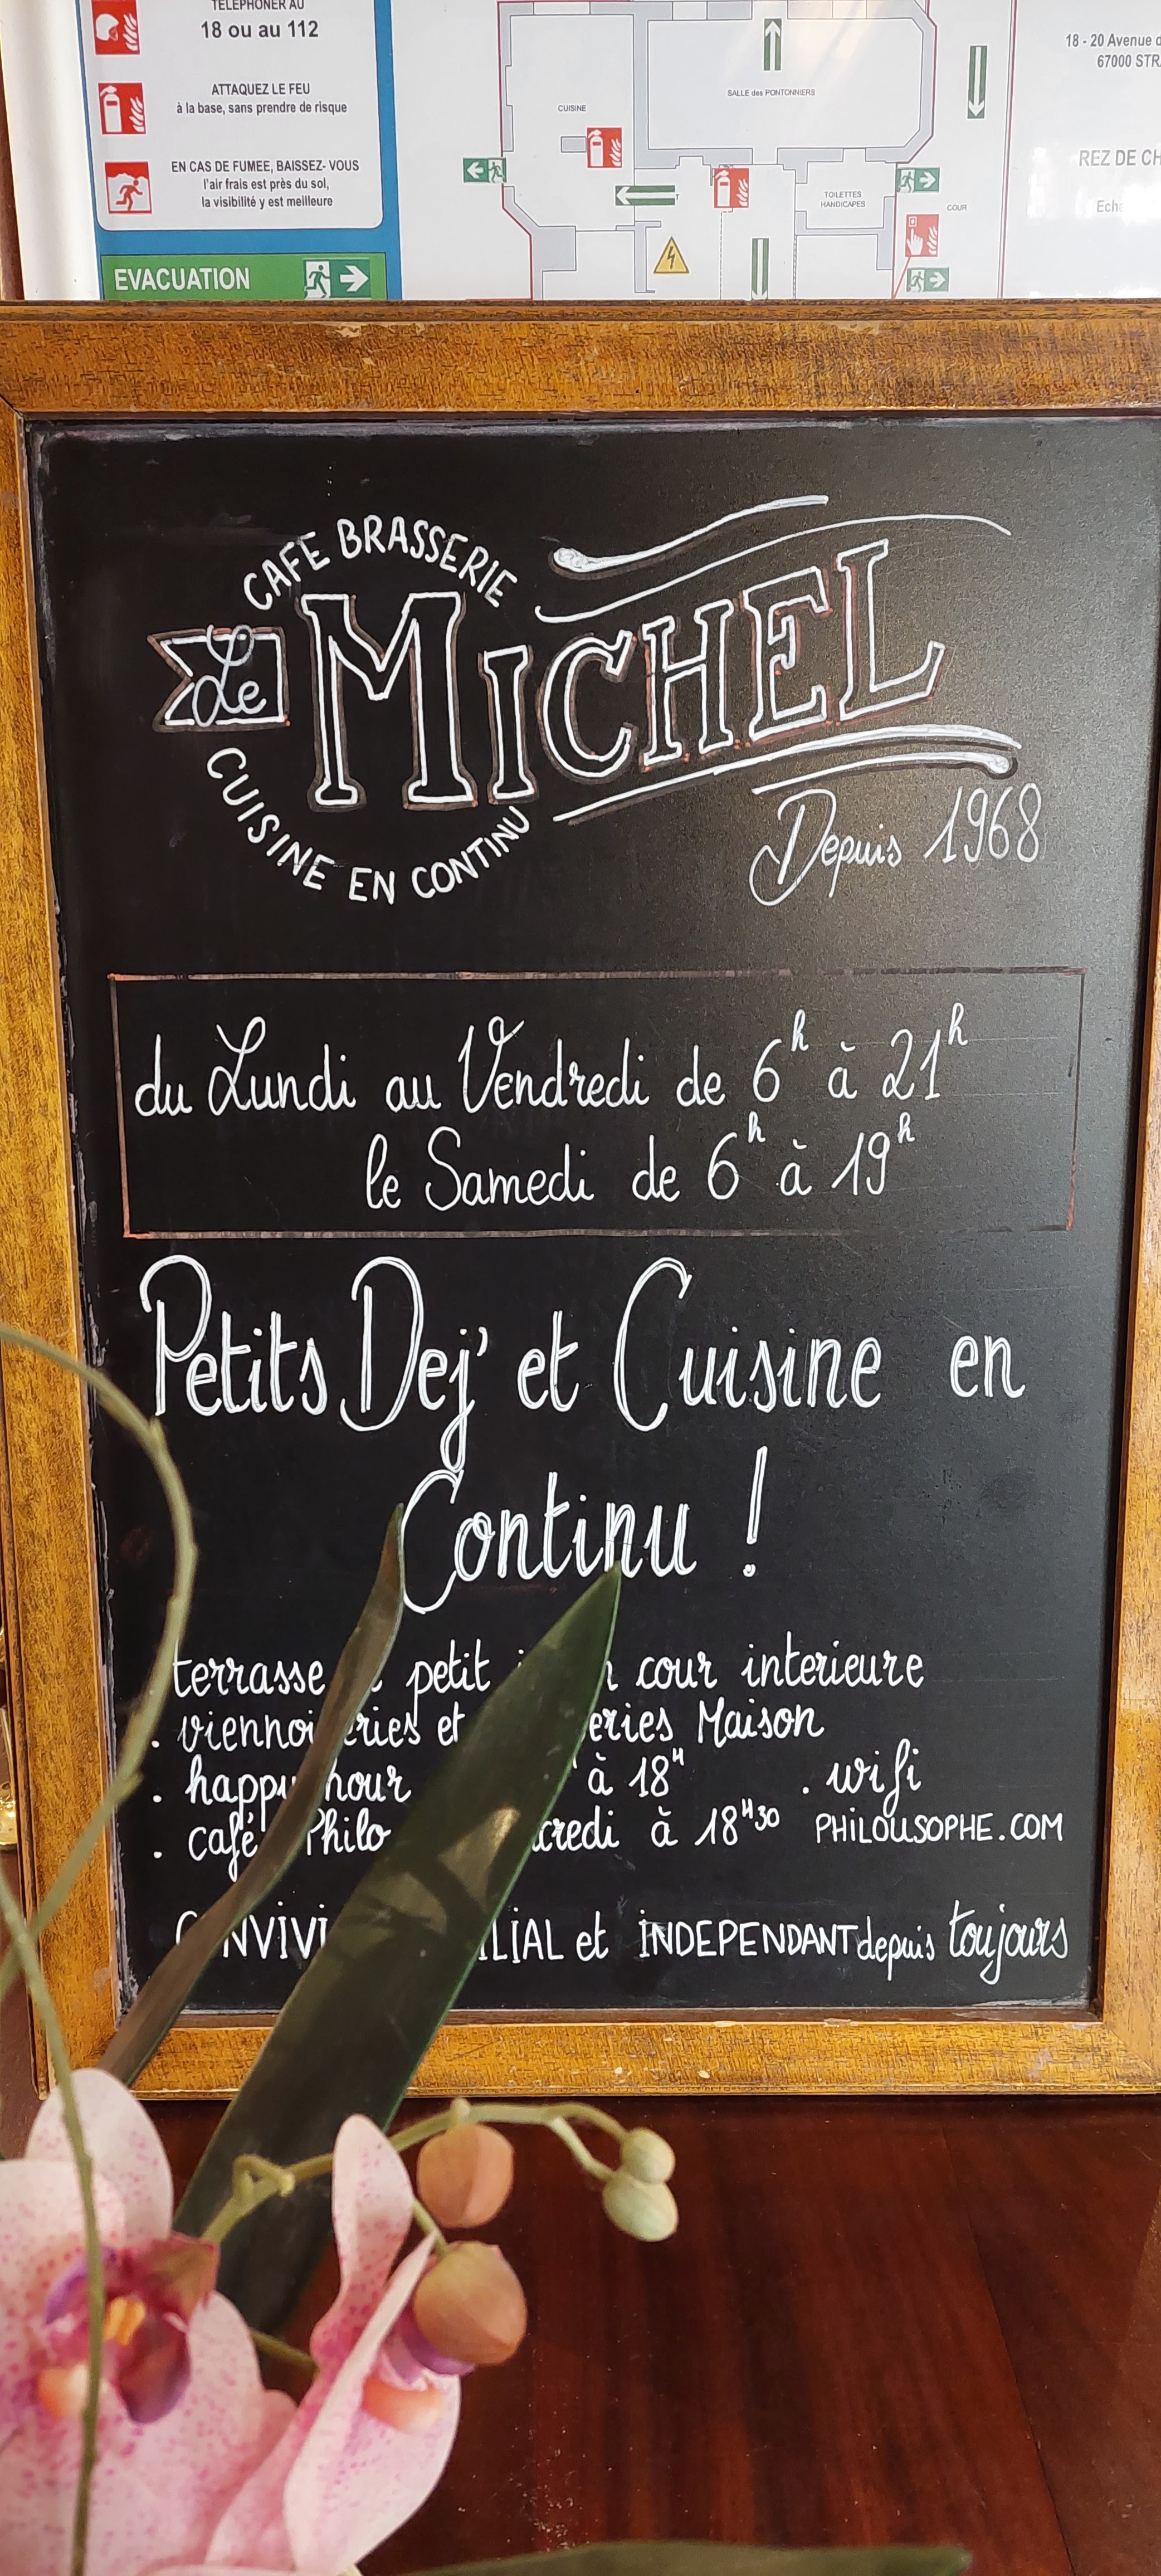 TELEPHONER AU
18 ou au 112
ATTAQUEZ LE FEU
à la base, sans prendre de risque
EN CAS DE FUMEE, BAISSEZ- VOUS
l'air frais est près du sol,
la visibilité y est meilleure
EVACUATION
CUISINE
SALLE des PONTONNIERS
TOILETTES
HANDICAPES
COUR
18 - 20 Avenue
67000
REZ DE
CAFE BRASSERIE
Le MICHEL
CUISINE EN CONTINU
Depuis 1968
du Lundi au Vendredi de 6h à 21h
le Samedi de 6h à 19h
Petits Dej' et Cuisine en
Continu !
terrasse petit cour interieure
. et Maison
. happy hour à 18H . wifi
. café Philo à 18H30 PHILOUSOPHE.COM
et INDEPENDANT depuis toujours